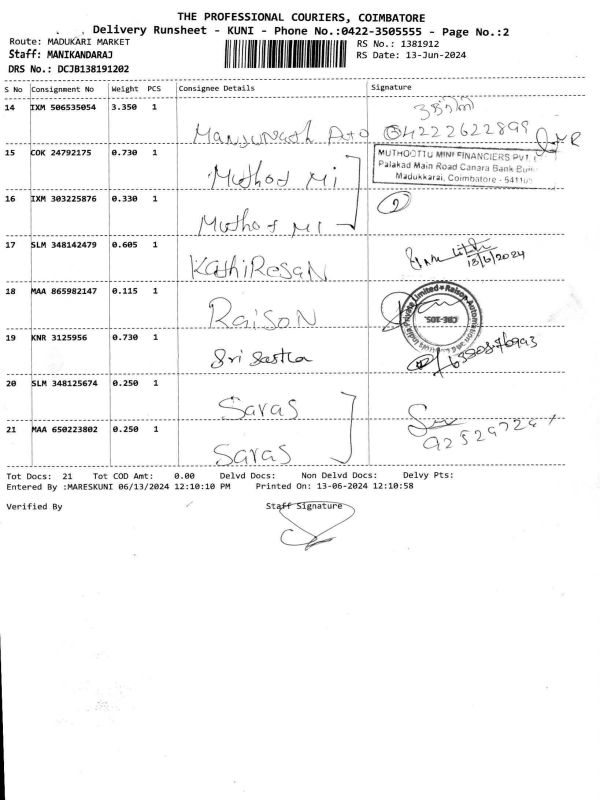 THE PROFESSIONAL COURIERS, COIMBATORE
Delivery Runsheet - KUNI - Phone No.:0422-3505555 - Page No.:2
Route: MADUKARI MARKET
RS No.: 1381912
Staff: MANIKANDARAJ
RS Date: 13-Jun-2024
DRS No.: DCJB138191202
S No Consignment No Weight PCS Consignee Details Signature
14 IXM 506535054 3.350 1
Manjunath Auto
04222622899
15 COK 24792175 0.730 1
Muthoot Mi
MUTHOOTTU MINI FINANCIERS PVT.
Palakad Main Road Canara Bank
Madukkarai, Coimbatore -
16 IXM 303225876 0.330 1
Muthoot Mi
2
17 SLM 348142479 0.605 1
KathiResan
13/6/2024
18 MAA 865982147 0.115 1
RaiSON
CBE-105.
19 KNR 3125956 0.730 1
Sri Sastha
20 SLM 348125674 0.250 1
Saras
21 MAA 650223802 0.250 1
Saras
Tot Docs: 21 Tot COD Amt: 0.00 Delvd Docs: Non Delvd Docs: Delvy Pts:
Entered By :MARESKUNI 06/13/2024 12:10:10 PM Printed On: 13-06-2024 12:10:58
Verified By Staff Signature